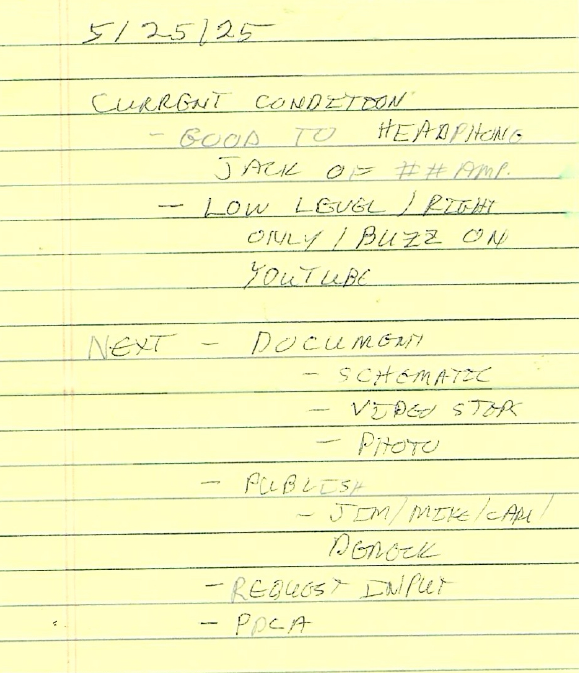 5/25/25
CURRENT CONDITION
- GOOD TO HEADPHONE
JACK OF ## AMP.
- LOW LEVEL / RIGHT
ONLY / BUZZ ON
YOUTUBE
NEXT - DOCUMENT
- SCHEMATIC
- VIDEO
- PHOTO
- PUBLISH
- JIM/MIKE/CARL/
DEROCK
- REQUEST INPUT
- PDCA